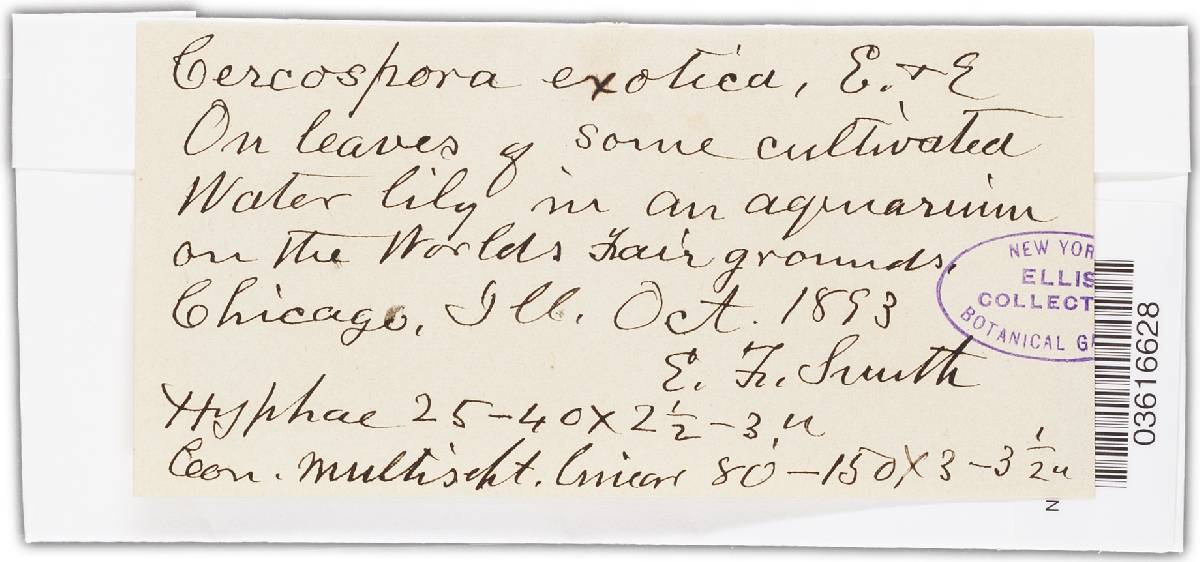 Cercospora exotica, E. & E
On leaves of some cultivated
Water lily in an aquarium
on the Worlds Fair grounds.
Chicago, Ill. Oct. 1893
E. F. Smith
Hyphae 25-40 x 2 1/2 - 3 u
Con. multisept. linear 80-150 x 3-3 1/2 u
NEW YOR
ELLIS
COLLECT
BOTANICAL G
03616628
N